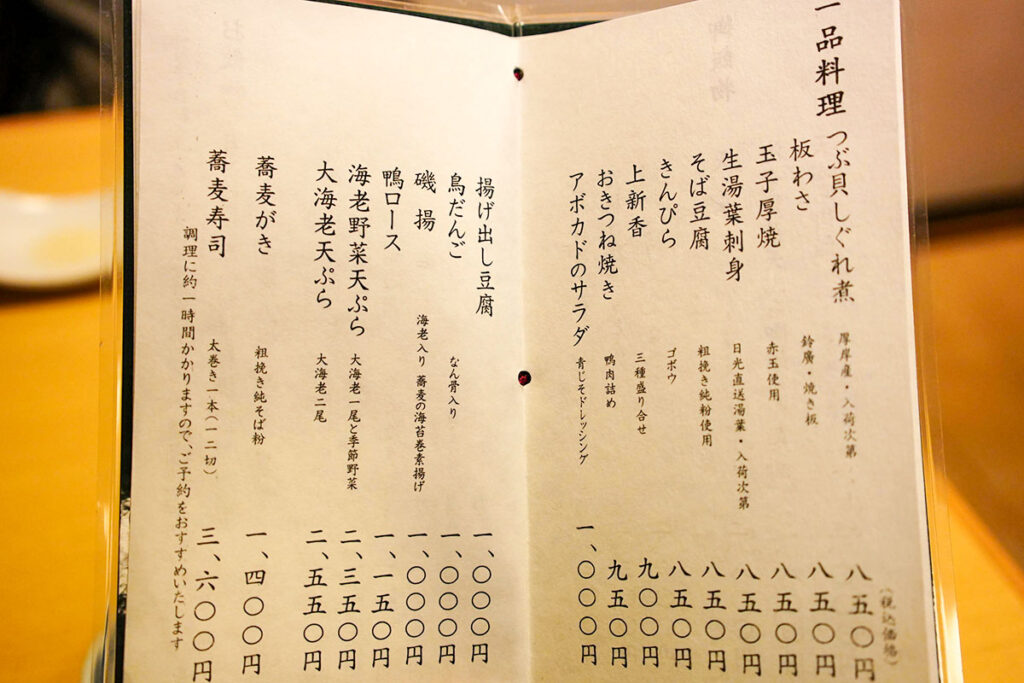 一品料理
(税込価格)
つぶ貝しぐれ煮 厚岸産・入荷次第 八五〇円
板わさ 鈴廣・焼き板 八五〇円
玉子厚焼 赤玉使用 八五〇円
生湯葉刺身 日光直送湯葉・入荷次第 八五〇円
そば豆腐 粗挽き純粉使用 八五〇円
きんぴら ゴボウ 八五〇円
上新香 三種盛り合せ 九〇〇円
おきつね焼き 鴨肉詰め 九五〇円
アボカドのサラダ 青じそドレッシング 一、〇〇〇円
揚げ出し豆腐 一、〇〇〇円
鳥だんご なん骨入り 一、〇〇〇円
磯揚 海老入り 蕎麦の海苔巻素揚げ 一、〇〇〇円
鴨ロース 一、一五〇円
海老野菜天ぷら 大海老一尾と季節野菜 二、三五〇円
大海老天ぷら 大海老二尾 二、五五〇円
蕎麦がき 粗挽き純そば粉 一、四〇〇円
蕎麦寿司 太巻き一本(一二切) 三、六〇〇円
調理に約一時間かかりますので、ご予約をおすすめいたします